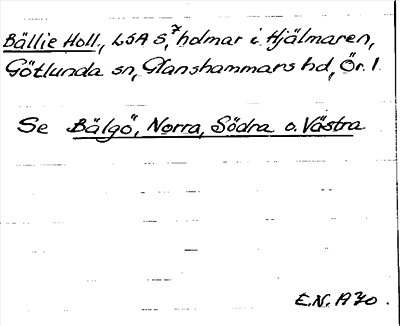 Bällie Holl., LSA S, 7 holmar i Hjälmaren,
Götlunda sn, Glanshammars hd, Ör. l.
Se Bälgö, Norra, Södra o. Västra.
E.N. A 70.